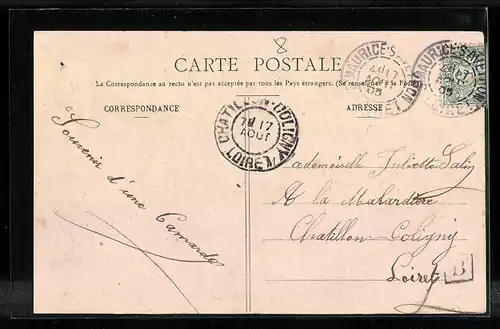 8
CARTE POSTALE
La Correspondance au recto n'est pas acceptée par tous les Pays étrangers. (Se renseigner à la Poste)
CORRESPONDANCE
ADRESSE
MAURICE-S-AVEYRON
17
AOUT
05
LOIRET
MAURICE-S-AVEYRON
17
05
LOIRET
CHATILLON-COLIGNY
17
AOUT
LOIRET
Souvenir
d'une
Camarade
Mademoiselle Juliette
A la Malardière
Chatillon-Coligny
Loiret
B